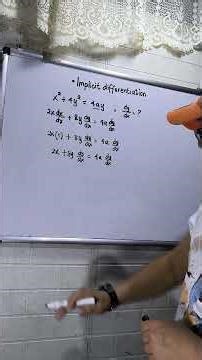 • Implicit differentiation
x² + 4y² = 4ay , dy/dx = ?
2x dx/dx + 8y dy/dx = 4a dy/dx
2x(1) + 8y dy/dx = 4a dy/dx
2x + 8y dy/dx = 4a dy/dx